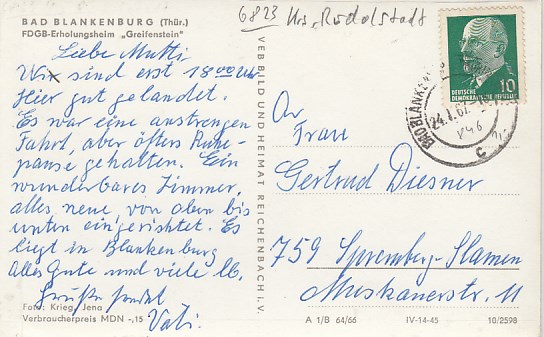 6823 Krs. Rudolstadt
BAD BLANKENBURG (Thür.)
FDGB-Erholungsheim „Greifenstein"
Liebe Mutti
Wir sind erst 18 00 Uhr
Hier gut gelandet.
Es war eine anstrengen
Fahrt, aber öfters Ruhe-
pause gehalten. Ein
wunderbares Zimmer,
alles neue von oben bis
unten eingerichtet. Es
liegt in Blankenburg
Alles Gute und viele lb.
Grüße sendet
Vati.
Foto: Krieg, Jena
Verbraucherpreis MDN -,15
VEB BILD UND HEIMAT REICHENBACH I. V.
DEUTSCHE
DEMOKRATISCHE REPUBLIK
10
BAD BLANKENBURG
24.7.67
c
An
Frau
Gertrud Diesner
759 Spremberg-Slamen
Muskauerstr. 11
A 1/B 64/66
IV-14-45
10/2598